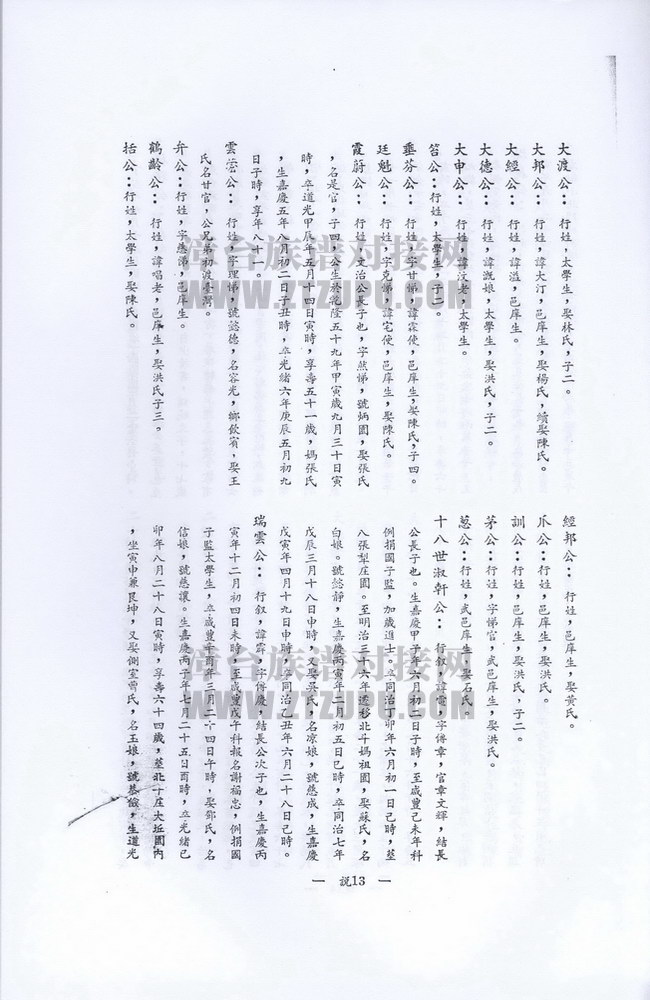 大渡公：行姓，太學生，娶林氏，子二。
大邦公：行姓，諱大汀，邑庠生，娶楊氏，續娶陳氏。
大經公：行姓，諱溢，邑庠生。
大德公：行姓，諱溉娘，太學生，娶洪氏，子二。
大申公：行姓，諱汶老，太學生。
笞公：行姓，太學生，子二。
垂芬公：行姓，字甘悌，諱霖使，邑庠生，娶陳氏，子四。
廷魁公：行姓，字克悌，諱宅使，邑庠生，娶陳氏。
霞蔚公：行姓，文治公長子也，字然悌，號炳園，娶張氏
，名是官，子四，公生於乾隆五十九年甲寅歲九月三十日寅
時，卒道光甲辰年五月十四日寅時，享壽五十一歲，媽張氏
，生嘉慶五年八月初二日子丑時，卒光緒六年庚辰五月初九
日子時，享年八十一。
雲從公：行姓，字理悌，號懿德，名容光，鄉飲賓，娶王
氏名甘官，公兄弟初渡臺灣。
弁公：行姓，字慈，邑庠生。
鶴齡公：行姓，諱唱老，邑庠生，娶洪氏子三。
括公：行姓，太學生，娶陳氏。
經邦公：行姓，邑庠生，娶黃氏。
爪公：行姓，邑庠生，娶洪氏。
訓公：行姓，邑庠生，娶洪氏，子二。
茅公：行姓，字悌官，武邑庠生，娶洪氏。
葱公：行姓，武邑庠生，娶石氏。
十八世淑軒公：行叙，諱電，字俦章，官章文輝，結長
公長子也。生嘉慶甲子年六月初二日子時，至咸豐己未年科
例捐國子監，加歲進士，卒同治丁卯年六月初一日己時，塟
八張犁庄園。至明治三十六年遷移北斗媽祖園，娶蘇氏，名
白娘。號懿靜，生嘉慶丙寅年二月初五日巳時，卒同治七年
戊辰三月十八日申時，再娶吳氏，名凉娘，號慈成，生嘉慶
戊寅年四月十九日申時，卒同治乙丑年六月二十八日己時。
瑞雲公：行叙，諱霹，字俦慶，結長公次子也，生嘉慶丙
寅年十二月初四日未時，至咸豐戊午科報名謝福忠，例捐國
子監太學生，卒咸豐辛酉年三月二十四日午時，娶鄧氏，名
信娘，號慈讓。生嘉慶丙子年七月二十五日酉時，卒光緒己
卯年八月二十八日寅時，享壽六十四歲，塟北斗庄大坵園內
，坐寅申兼艮坤，又娶側室曹氏，名玉娘，號慈儉，生道光
— 說13 —
台族谱对接网
WWW.ZTZUPU.COM
台族谱对接网
WWW.ZTZUPU.COM